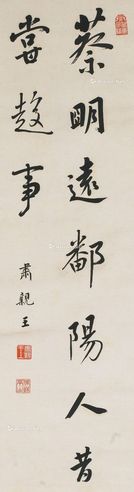 蔡明遠鄱陽人昔
嘗趍事
肅親王